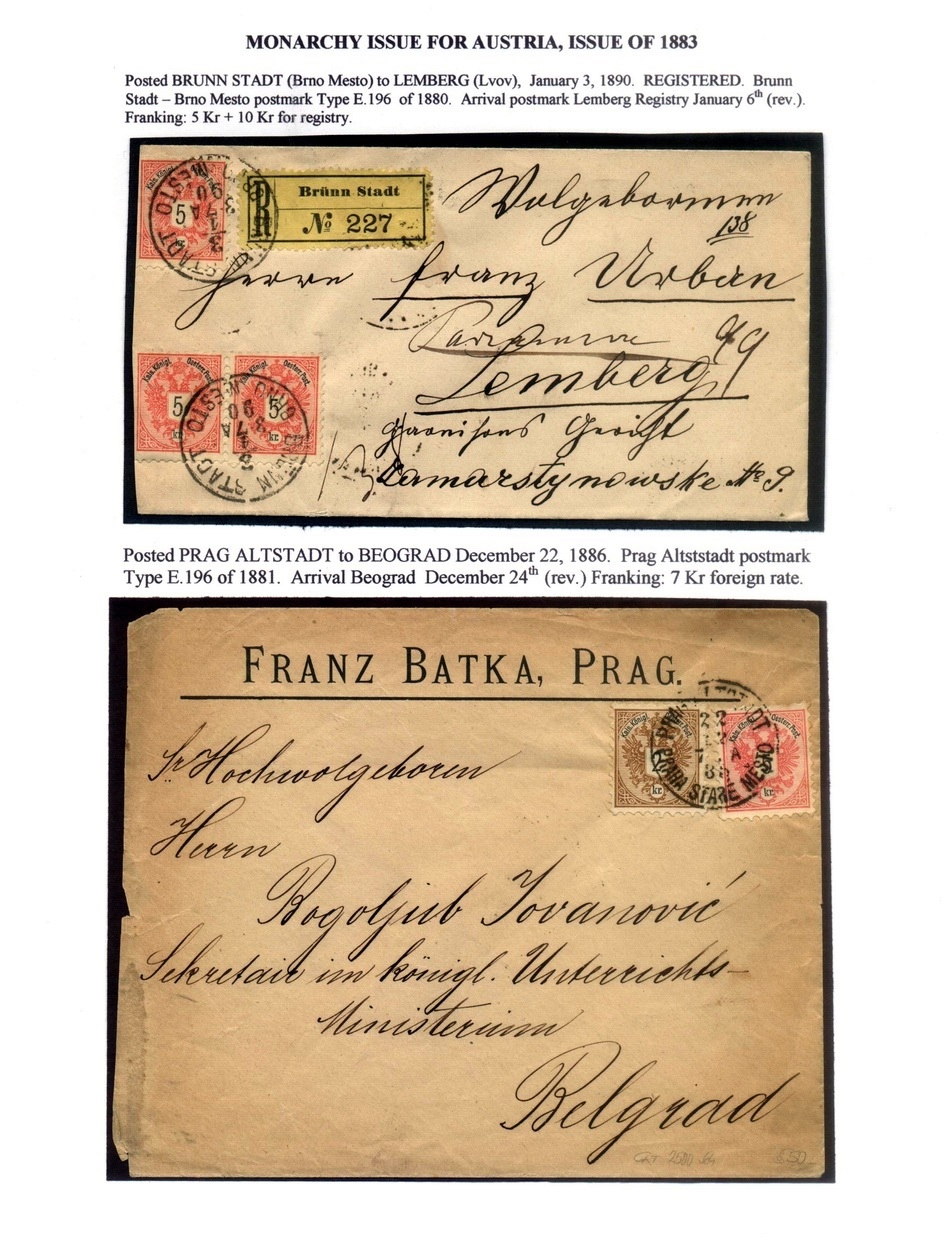 MONARCHY ISSUE FOR AUSTRIA, ISSUE OF 1883
Posted BRUNN STADT (Brno Mesto) to LEMBERG (Lvov), January 3, 1890. REGISTERED. Brunn
Stadt – Brno Mesto postmark Type E.196 of 1880. Arrival postmark Lemberg Registry January 6th (rev.).
Franking: 5 Kr + 10 Kr for registry.
Kais. Königl. Oesterr. Post.
5
kr.
BRÜNN STADT
3 1
7 A
90
BRNO MESTO
R
Brünn Stadt
No 227
Wolgebornen
138
Herrn Franz Urban
Lemberg
Garnisons Gericht
Zamarstynowske No 9.
Kais. Königl. Oesterr. Post.
5
kr.
Kais. Königl. Oesterr. Post.
5
kr.
BRÜNN STADT
7 A
90
BRNO MESTO
Posted PRAG ALTSTADT to BEOGRAD December 22, 1886. Prag Altststadt postmark
Type E.196 of 1881. Arrival Beograd December 24th (rev.) Franking: 7 Kr foreign rate.
FRANZ BATKA, PRAG.
Kais. Königl. Oesterr. Post.
2
kr.
Kais. Königl. Oesterr. Post.
kr.
PRAG ALTSTADT
22
12
7 A
86
PRAHA STARÉ MĚSTO
Sr. Hochwolgeboren
Herrn
Bogoljub Jovanović
Sekretair im königl. Unterrichts-
Ministerium
Belgrad